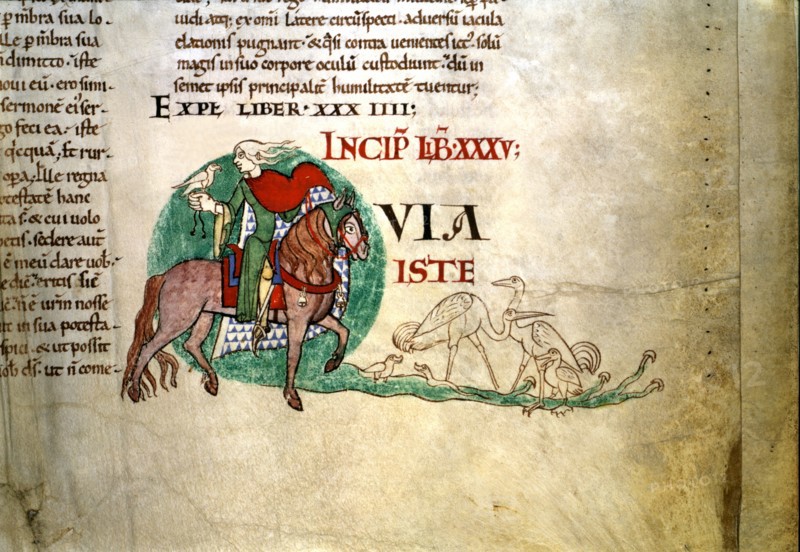 p̄ mbra sua lo-
Ille p̄ mbra sua
dimitto · iste
novi eū · ero simi-
sermonē ei ser-
go feci ea · iste
qicquā, Et rur-
opa, Ille regna
potestatē hanc
ta s̄ · & cui volo
petis · sedere aut
ē meū dare vob·
eritis siē
urm nosse
ut in sua potesta-
& ut possit
vob ds̄ · ut ñ come-
vidi atq; ex omi latere circūspecti · adversū iacula
elationis pugnant · & q̄si contra venientes ict · solū
magis in suo corpore oculū custodiunt · dū in
semet ipsis principalit humilitatē tuentur;
EXPL LIBER · XXX IIII;
INCIP̄ LIB̄ · XXXV;
QVIA
ISTE